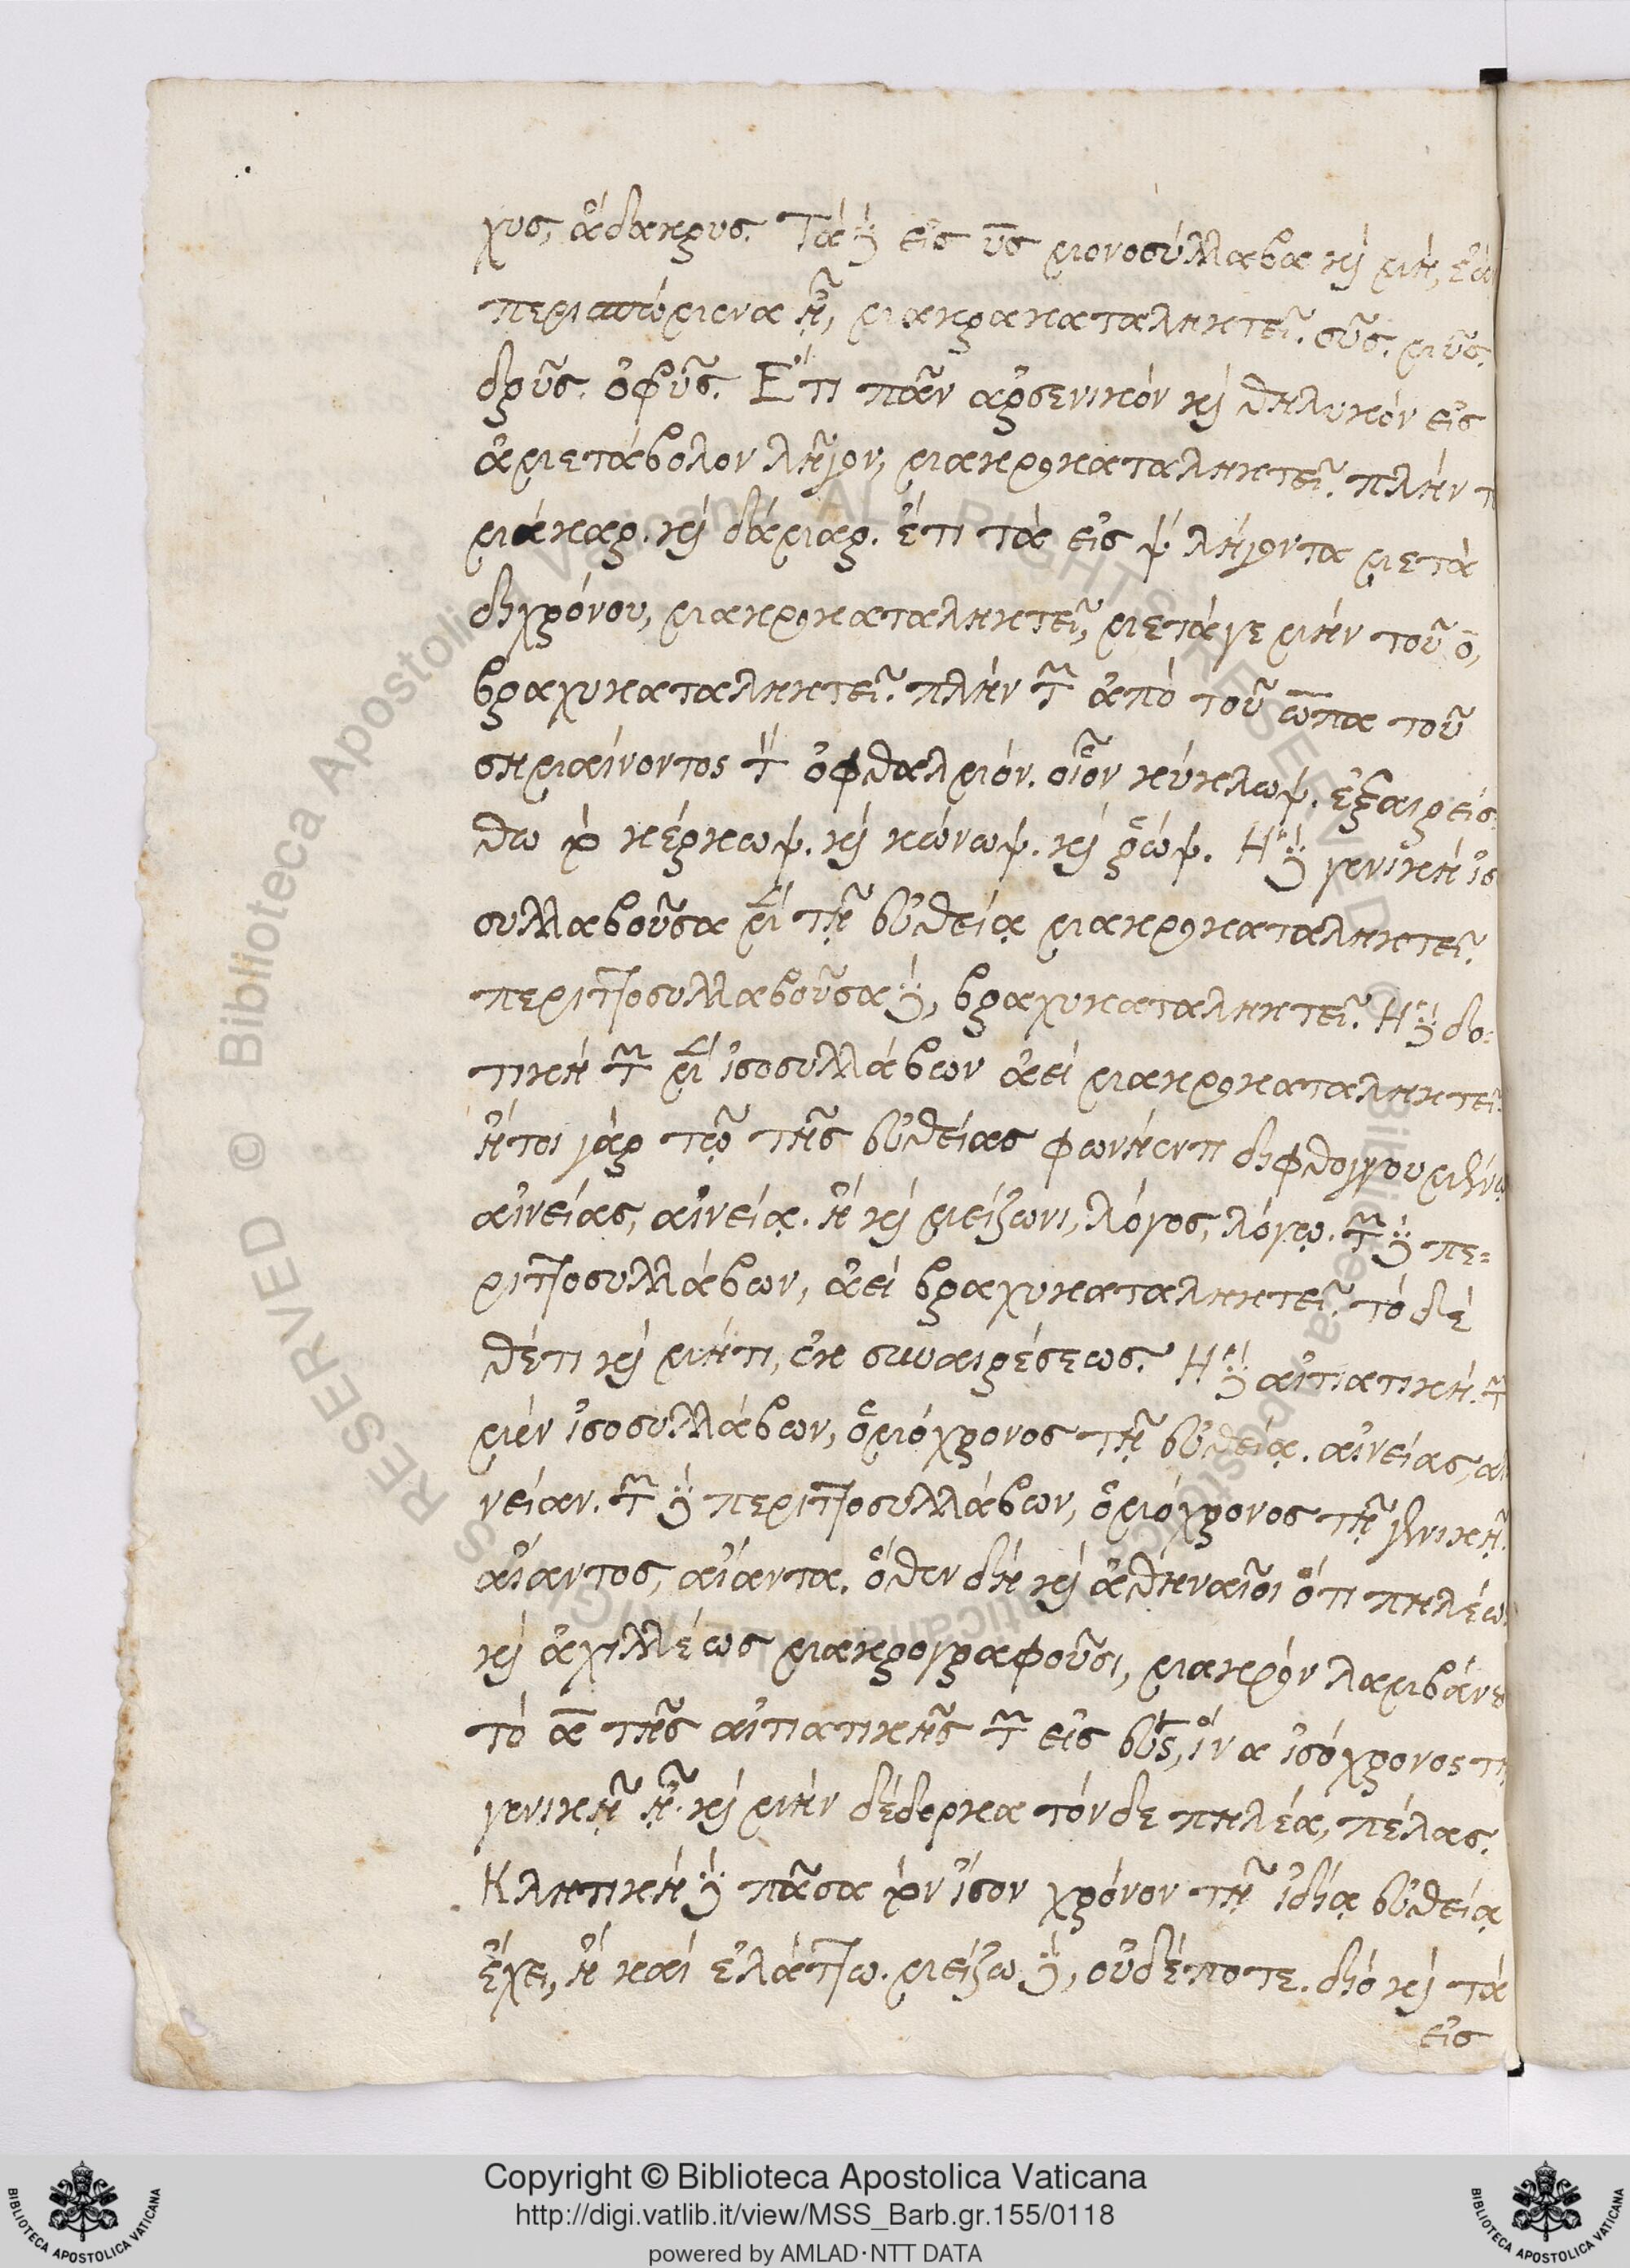 χυς, ἄδακρυς. Τὰ δὲ εἰς υς μονοσύλλαβα καὶ μὴ, ἐὰ
περισπώμενα ᾖ, μακροκαταληκτεῖ. σῦς. μῦς.
δρῦς. ὀφρῦς. Ἔτι πᾶν ἀρσενικὸν καὶ θηλυκὸν εἰς
ἀμετάβολον λῆγον, μακροκαταληκτεῖ. πλὴν τ
μάκαρ. καὶ δάμαρ. ἔτι τὰ εἰς ψ λήγοντα μετὰ
διχρόνου, μακροκαταληκτεῖ, μετά γε μὴν τοῦ ο,
βραχυκαταληκτεῖ. πλὴν τῶν ἀπὸ τοῦ ὦπα τοῦ
σημαίνοντος τὸν ὀφθαλμόν. οἷον κύκλωψ. ἐξαιρείσ-
θω κέρκωψ. καὶ κώνωψ. καὶ ῥώψ. Ἡ δὲ γενικὴ ἰσ
συλλαβοῦσα μὲν τῇ εὐθείᾳ μακροκαταληκτεῖ.
περιττοσυλλαβοῦσα δὲ, βραχυκαταληκτεῖ. Ἡ δὲ δο-
τικὴ τῶν μὲν ἰσοσυλλάβων ἀεὶ μακροκαταληκτεῖ.
ἤτοι γὰρ τῷ τῆς εὐθείας φωνήεντι διφθογγουμένῳ
αἰνείας, αἰνείᾳ. ἢ καὶ μείζονι, λόγος, λόγῳ. τῶν δὲ πε-
ριττοσυλλάβων, ἀεὶ βραχυκαταληκτεῖ. τὸ δὲ
θέτι καὶ μήτι, ἐκ συναιρέσεως. Ἡ δὲ αἰτιατικὴ. τ
μὲν ἰσοσυλλάβων, ὁμόχρονος τῇ εὐθείᾳ. αἰνείας, αἰ
νείαν. τῶν δὲ περιττοσυλλάβων, ὁμόχρονος τῇ γενικῇ.
αἴαντος, αἴαντα. ὅθεν δὴ καὶ ἀθηναῖοι ὅτι πηλέω
καὶ ἀχιλλέως μακρογραφοῦσι, μακρὸν λαμβάνου
τὸ α τῆς αἰτιατικῆς τῶν εἰς εὺς, ἵνα ἰσόχρονος τῇ
γενικῇ ᾖ. καὶ μὴν δέδορκα τόνδε πηλέα, πέλας.
Κλητικὴ δὲ πᾶσα ἴσον χρόνον τῇ ἰδίᾳ εὐθείᾳ
ἔχει, ἢ καὶ ἐλάττω. μείζω δὲ, οὐδέποτε. διὸ καὶ τὰ
εἰς
Copyright © Biblioteca Apostolica Vaticana
http://digi.vatlib.it/view/MSS_Barb.gr.155/0118
powered by AMLAD·NTT DATA